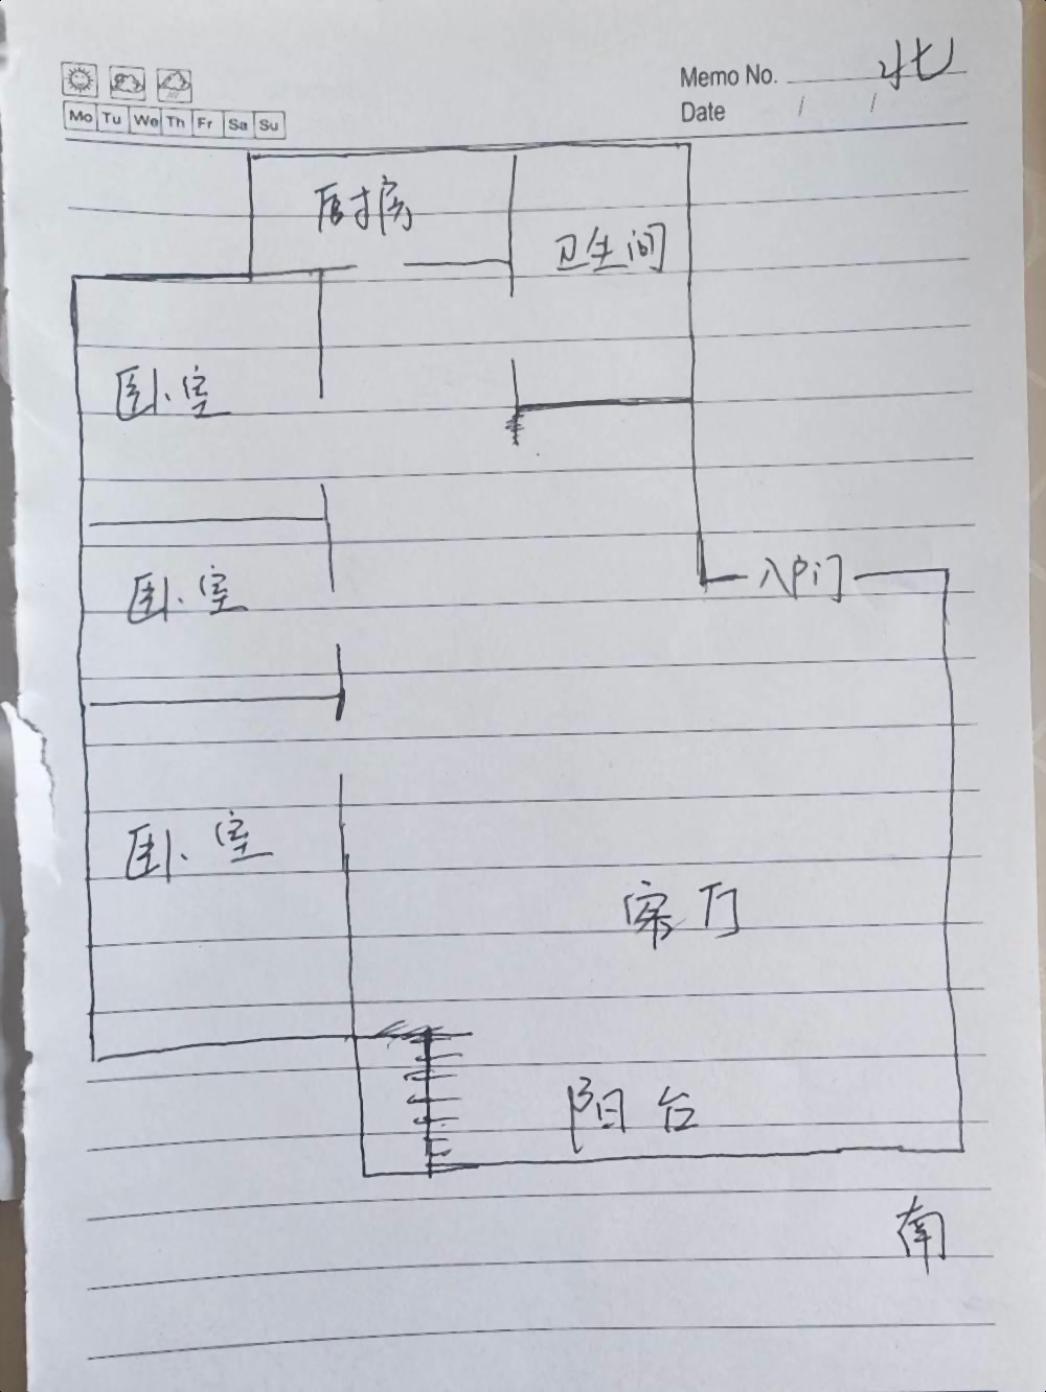 Memo No. 北
Date / /
Mo Tu We Th Fr Sa Su
厨房
卫生间
卧室
入户门
卧室
卧室
客厅
阳台
南